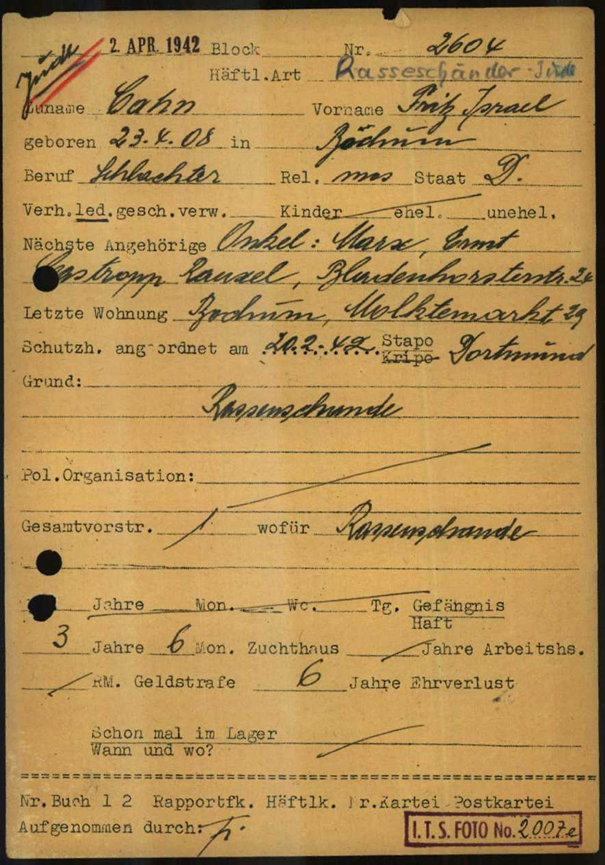 Jude 2. APR. 1942 Block Nr. 2604
Häftl.Art Rasseschänder-Jude
Zuname Cahn Vorname Fritz Israel
geboren 23.4.08 in Bochum
Beruf Schlachter Rel. mos Staat D.
Verh.led.gesch.verw. Kinder ehel. unehel.
Nächste Angehörige Onkel: Marx, Ernst
Castropp Rauxel,
Letzte Wohnung Bochum, Moltkemarkt 29
Schutzh. angeordnet am 20.2.42 Stapo Dortmund
Kripo
Grund:
Rassenschande
Pol.Organisation:
Gesamtvorstr. 1 wofür Rassenschande
Jahre Mon. Wo. Tg. Gefängnis
Haft
3 Jahre 6 Mon. Zuchthaus Jahre Arbeitshs.
RM. Geldstrafe 6 Jahre Ehrverlust
Schon mal im Lager
Wann und wo?
Nr.Buch 1 2 Rapportfk. Häftlk. Nr.Kartei Postkartei
Aufgenommen durch:
I.T.S. FOTO No. 2007e